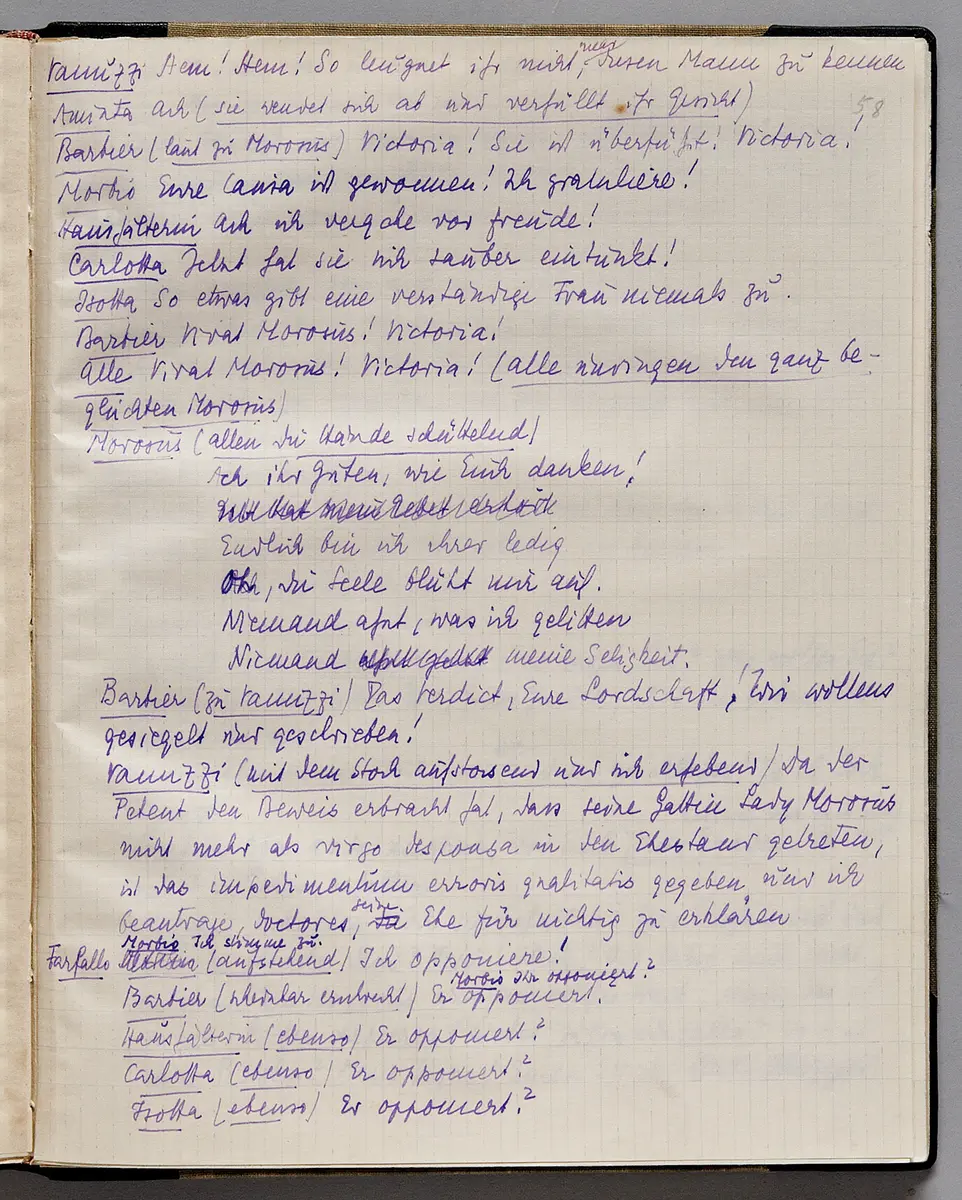 Vanuzzi Hem! Hem! So leugnet ihr nicht, diesen Mann zu kennen
58
Aminta Ach (sie wendet sich ab und verhüllt ihr Gesicht)
Barbier (laut zu Morosus) Victoria! Sie ist überführt! Victoria!
Morbio Eure Causa ist gewonnen! Ich gratuliere!
Haushälterin Ach ich vergehe vor Freude!
Carlotta Jetzt hat sie sich sauber eintunkt!
Isotta So etwas gibt eine verständige Frau niemals zu.
Barbier Vivat Morosus! Victoria!
Alle Vivat Morosus! Victoria! (alle umringen den ganz be-
glückten Morosus)
Morosus (allen die Hände schüttelnd)
Ach ihr Guten, wie Euch danken!
Endlich bin ich ihrer ledig
Oh, die Seele blüht mir auf.
Niemand ahnt, was ich gelitten
Niemand meine Seligkeit.
Barbier (zu Vanuzzi) Das Verdict, Eure Lordschaft! Wir wollens
gesiegelt und geschrieben!
Vanuzzi (mit dem Stock aufstossend und sich erhebend) Da der
Petent den Beweis erbracht hat, dass seine Gattin Lady Morosus
nicht mehr als virgo desponsa in den Ehestand getreten,
ist das impedimentum erroris qualitatis gegeben und ich
beantrage, doctores, seine Ehe für nichtig zu erklären
Morbio Ich stimme zu.
Farfallo (aufstehend) Ich opponiere!
Morbio Ihr opponiert?
Barbier (scheinbar erschreckt) Er opponiert?
Haushälterin (ebenso) Er opponiert?
Carlotta (ebenso) Er opponiert?
Isotta (ebenso) Er opponiert?